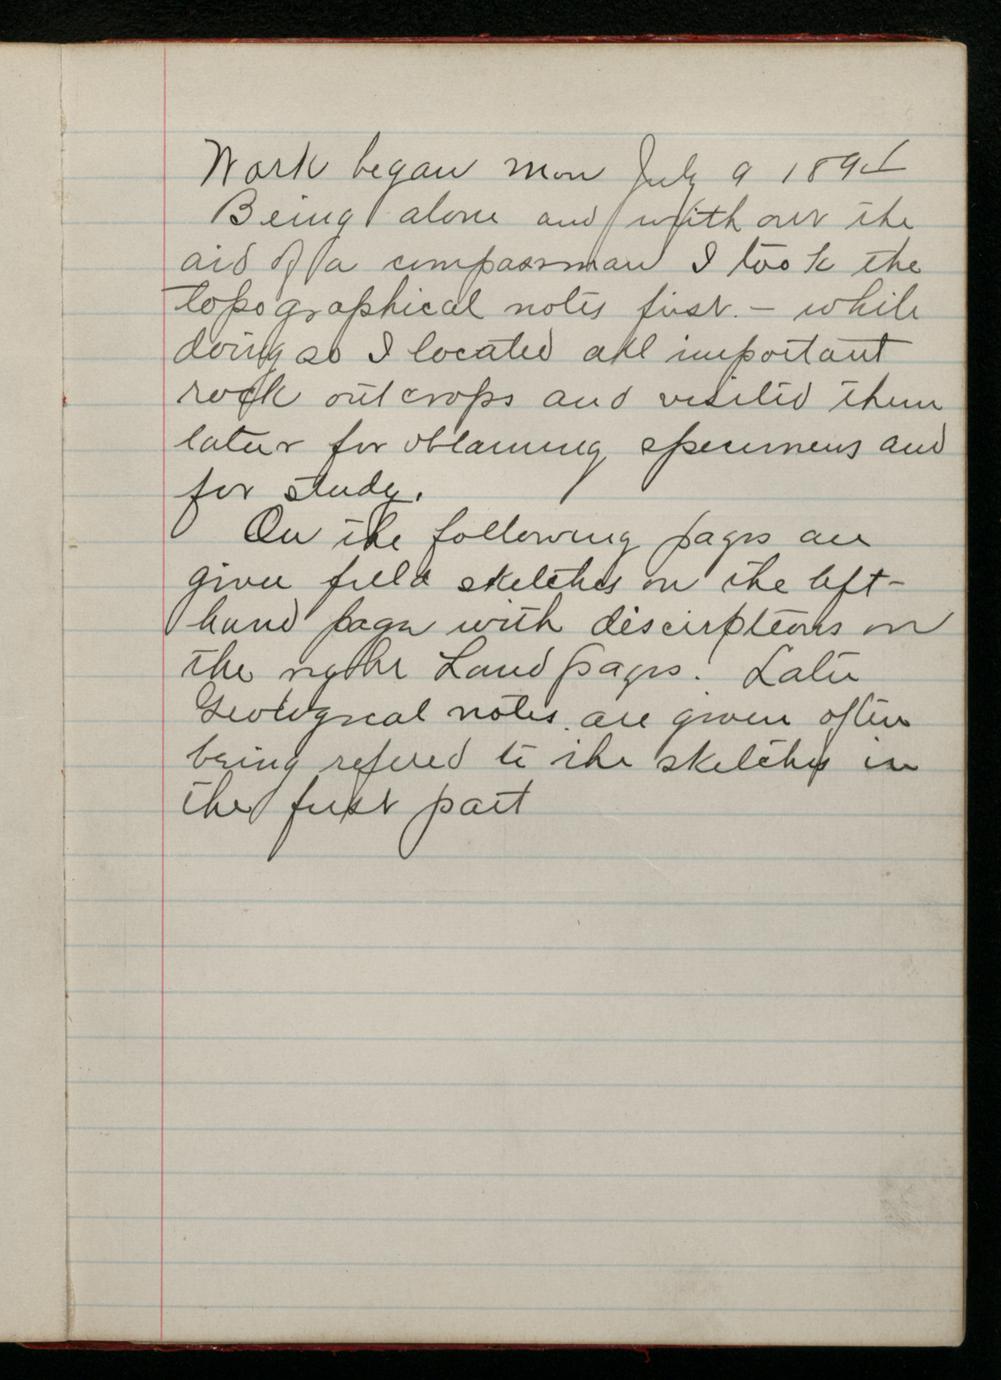 Work began Mon July 9 1894
Being alone and without the
aid of a compassman I took the
topographical notes first. – while
doing so I located all important
rock outcrops and visited them
later for obtaining specimens and
for study.
On the following pages are
given field sketches on the left-
hand page with discirptions on
the right hand pages. Later
Geological notes are given often
being refered to the sketches in
the first part